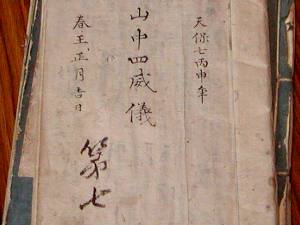 天保七丙申年
山中四威儀
春王正月吉日
第七